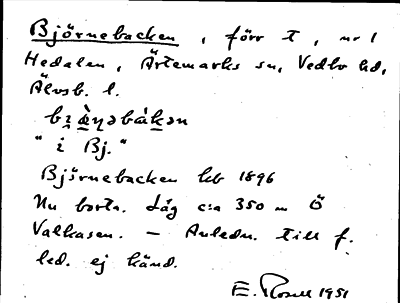 Björnebacken, förr t, nr 1
Hedalen, Ärtemarks sn, Vedbo hd,
Älvsb. l.
"i Bj."
Björnebacken hb 1896
Nu borta. Låg c:a 350 m Ö
Valkasen. — Anledn. till f.
led. ej känd.
E. Rosell 1951